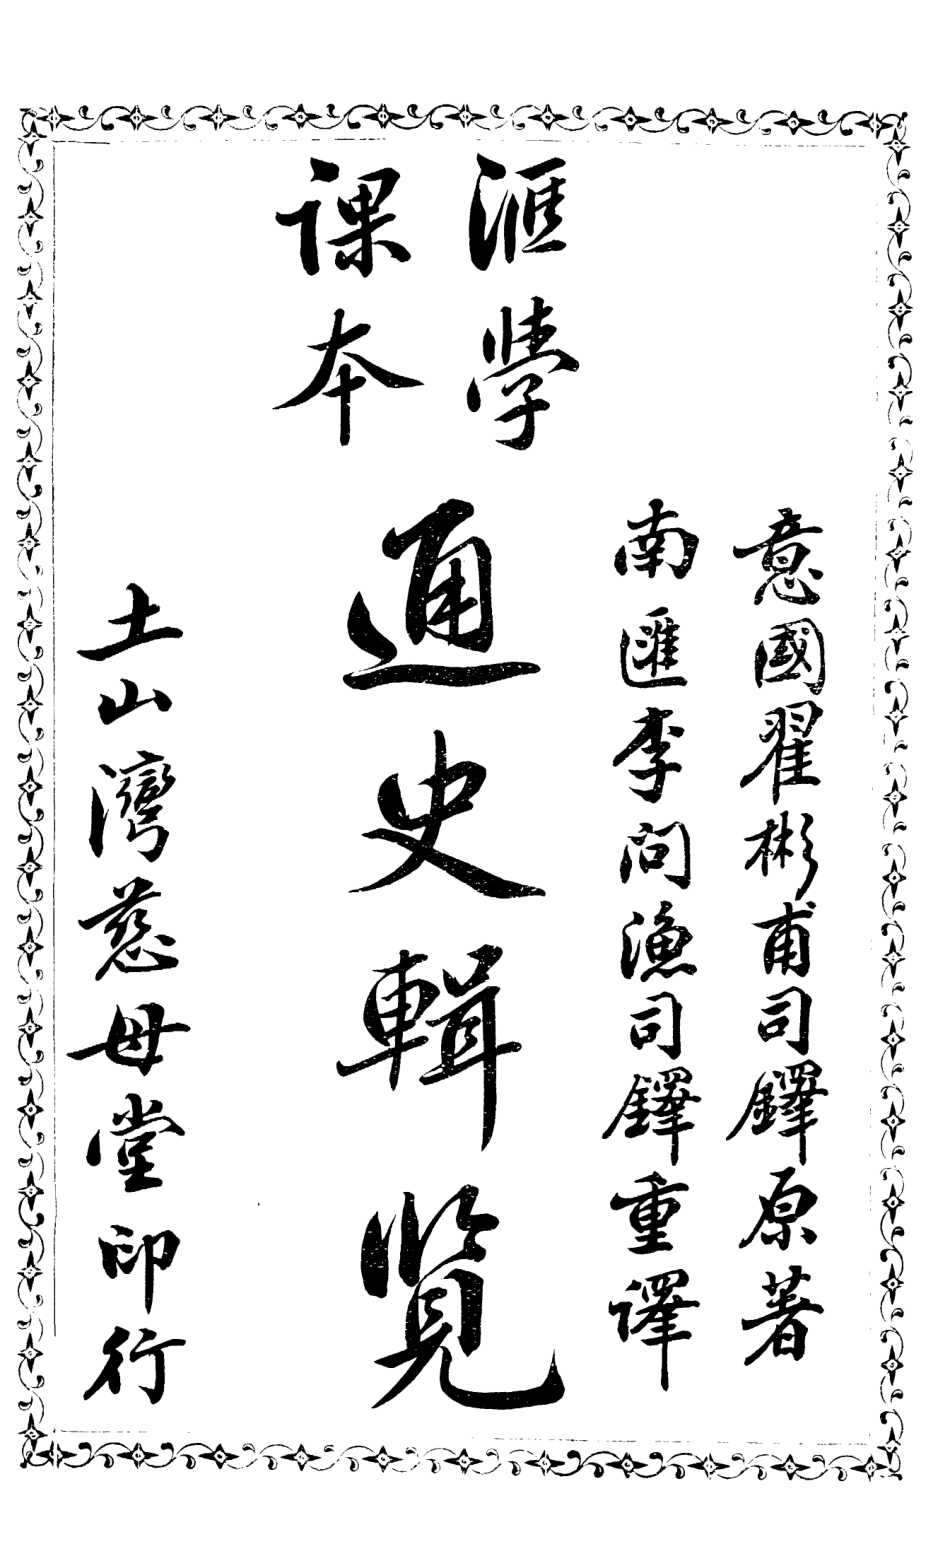 滙學
課本
意國翟彬甫司鐸原著
南匯李問漁司鐸重譯
通史輯覽
土山灣慈母堂印行